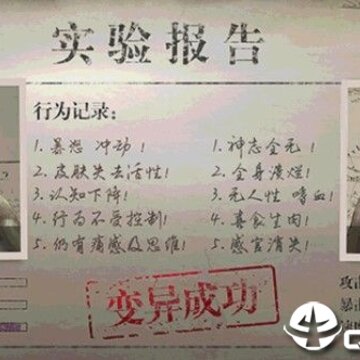 实验报告
行为记录:
1. 暴怒 冲动!
2. 皮肤失去活性!
3. 认知下降!
4. 行为不受控制!
5. 仍有痛感及思维!
1. 神志全无!
2. 全身溃烂!
3. 无人性 嗜血!
4. 喜食生肉!
5. 感官消失!
变异成功